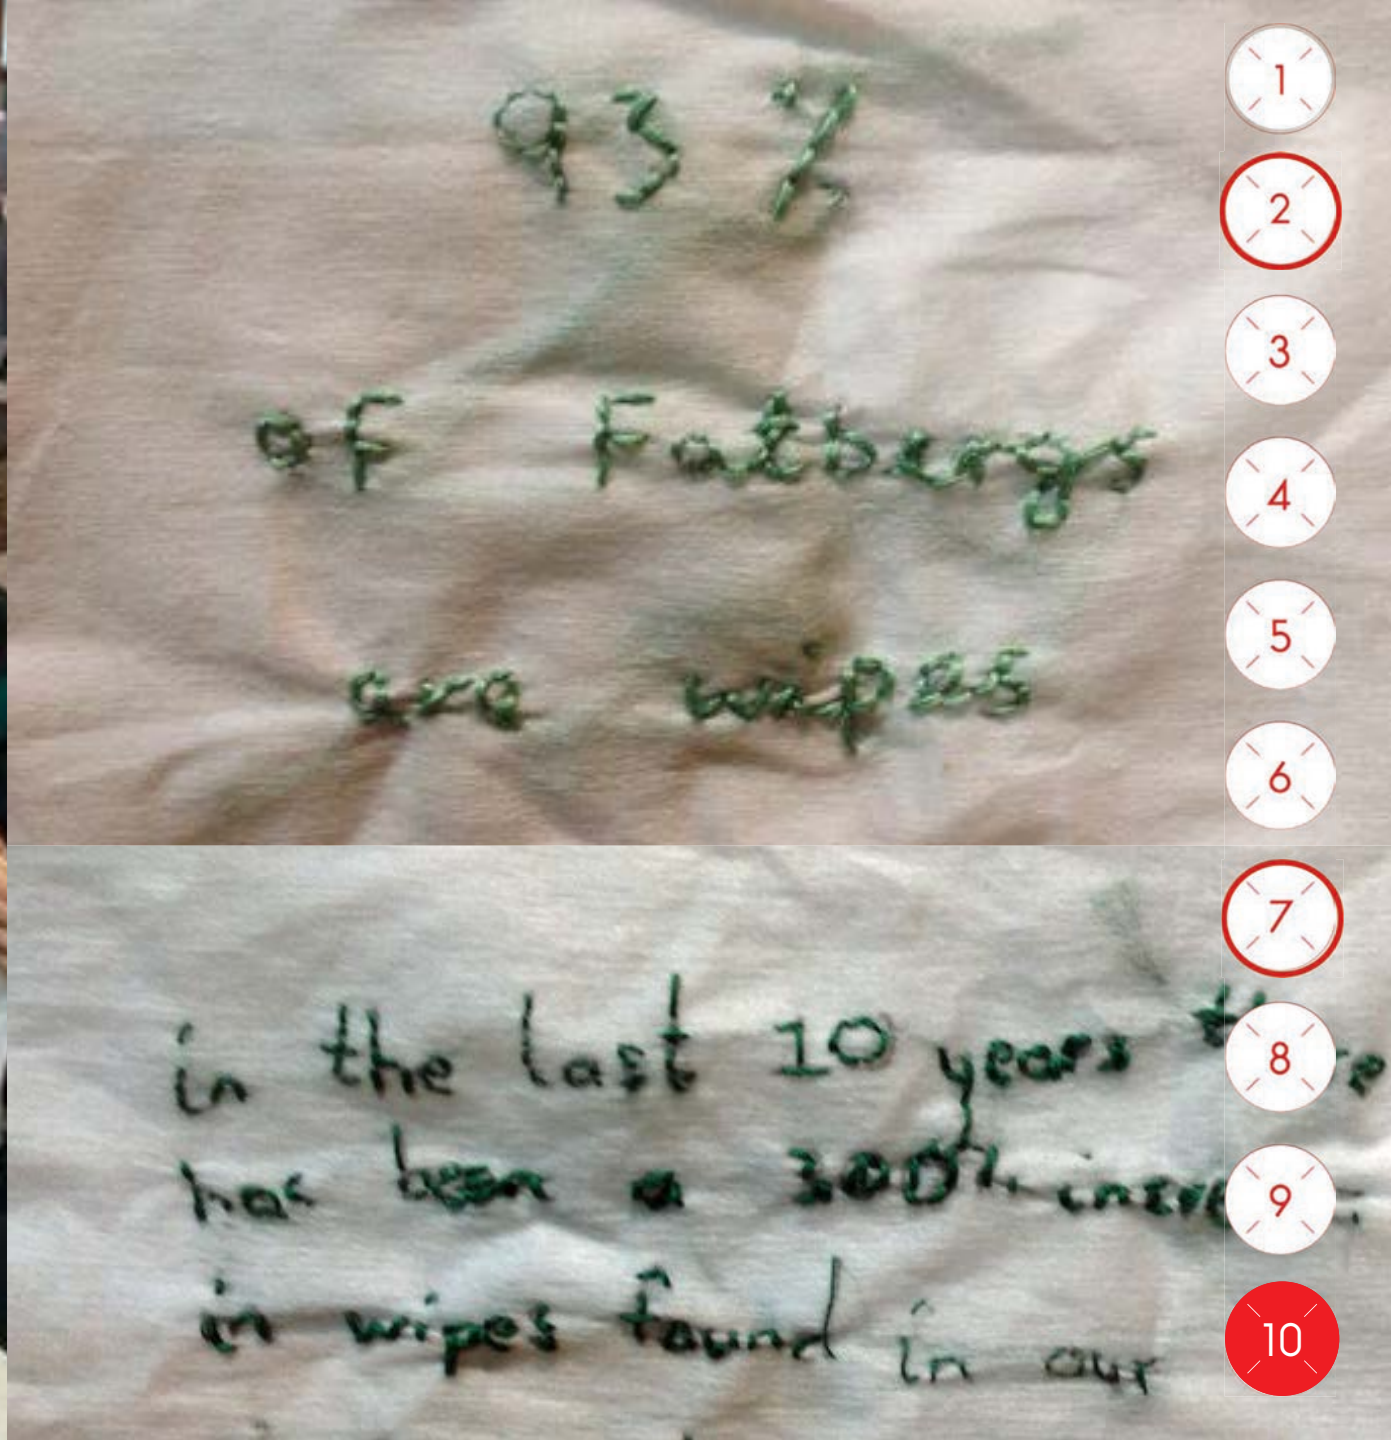 93 %
of Fatbergs
are wipes
in the last 10 years
has been a 300%
in wipes found in our
1
2
3
4
5
6
7
8
9
10